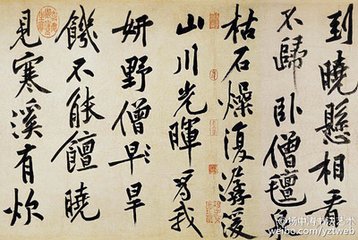 到曉懸相看
不歸臥僧氈泉
枯石燥復潺湲
山川光暉為我
妍野僧早旱
饑不能饘曉
見寒溪有炊
weibo.com/yztweb